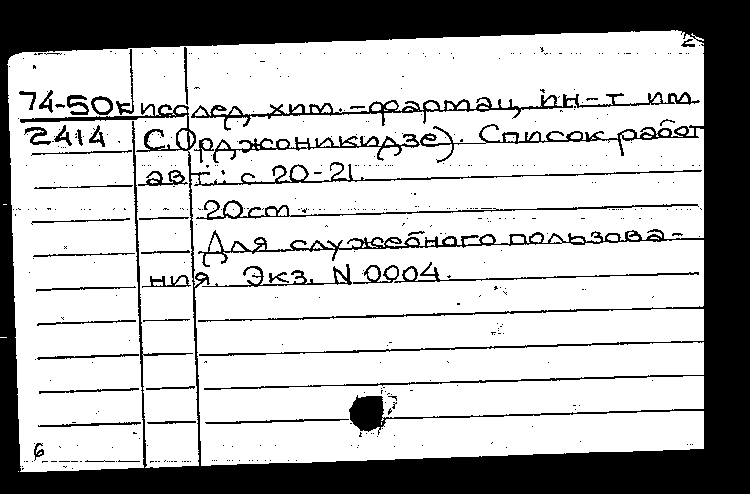 2
74-50к исслед. хим.-фармац. ин-т им
2414 С. Орджоникидзе). Список работ
авт.: с 20-21.
20cm.
Для служебного пользова-
ния. Экз. N 0004.
6